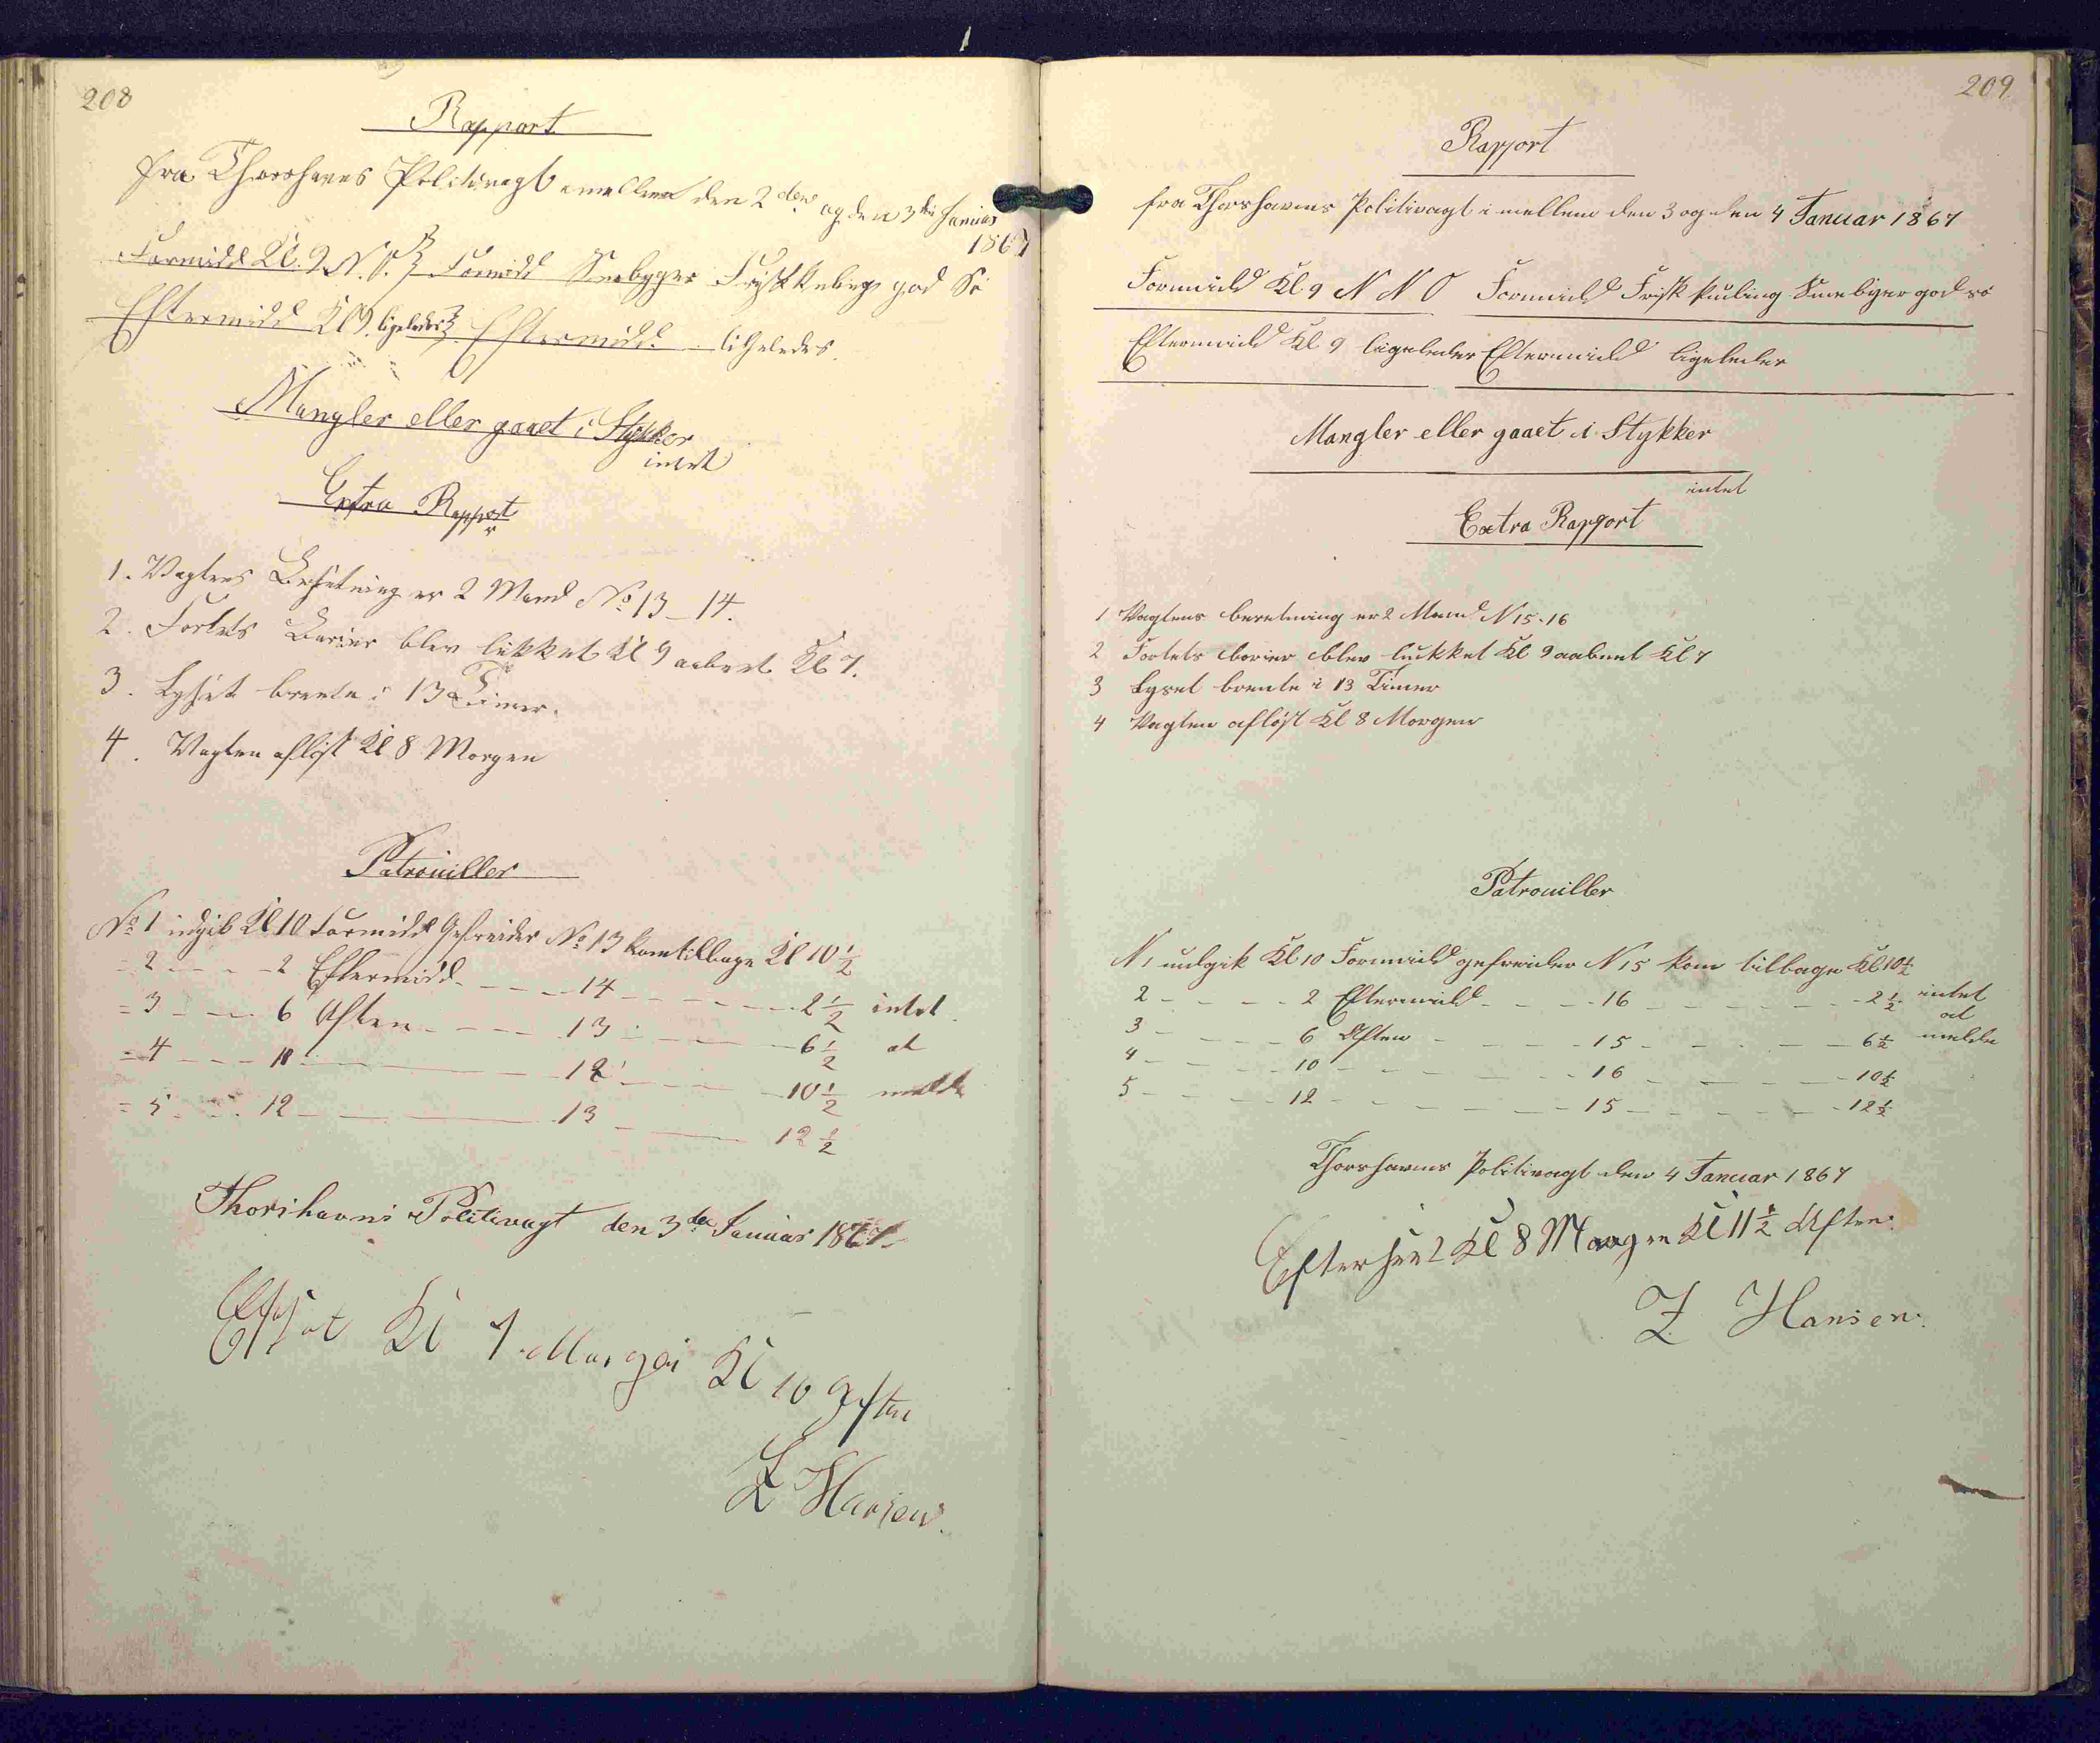 208
Rapport
fra Thorshavns Politivagt imellem den 2den og den 3die Januar
1867
Formidd Kl. 9 N. O. Formidd Sneebyger Frisk god Sö
Eftermidd Kl 9. ligeledes Eftermidd. ligeledes.
Mangler eller gaaet i Stykker
intet
Extra Rapport
1. Vagtens Besætning er 2 Mand No 13-14.
2. Fortets Barier blev lukket Kl 9 aabent Kl 7.
3. Lyset brente i 13 Timer.
4. Vagten aflöst Kl 8 Morgen
Patrouiller
No 1 udgik Kl 10 Formidd Gefreider No 13 kom tilbage Kl 10 1/2
= 2 - - - 2 Eftermidd - - - 14 - - - - - 2 1/2 intet
= 3 - - - 6 Aften - - - 13 - - - - - 6 1/2 at
= 4 - - - 10 - - - - - 1 - - - - - 10 1/2 melde
= 5 - - - 12 - - - - - 13 - - - - - 12 1/2
Thorshavns Politivagt den 3de Januar 1867.
Kl 1 Morgen Kl 10 Aften
Z Hansen.
209
Rapport
fra Thorshavns Politivagt i mellem den 3 og den 4 Januar 1867
Formidd Kl. 9 N N O Formidd Frisk kuling Snee byer god sö
Eftermidd Kl 9 ligeledes Eftermidd ligeledes
Mangler eller gaaet i Stykker
intet
Extra Rapport
1 Vagtens beretning er 2 Mand N 15-16
2 Fortets barier blev lukket Kl 9 aabnet Kl 7
3 Lyset brente i 13 Timer
4 Vagten aflöst Kl 8 Morgen
Patrouiller
N 1 uudgik Kl 10 Formidd gefreider N 15 kom tilbage Kl 10 1/2
2 - - - - 2 Eftermidd - - - - 16 - - - - - 2 1/2 intet
at
3 - - - - 6 Aften - - - - 15 - - - - - 6 1/2 melde
4 - - - - 10 - - - - - 16 - - - - - 10 1/2
5 - - - - 12 - - - - - 15 - - - - - 12 1/2
Thorshavns Politivagt den 4 Januar 1867
Efterseet Kl 8 Morgen Kl 11 1/2 Aften.
Z Hansen.